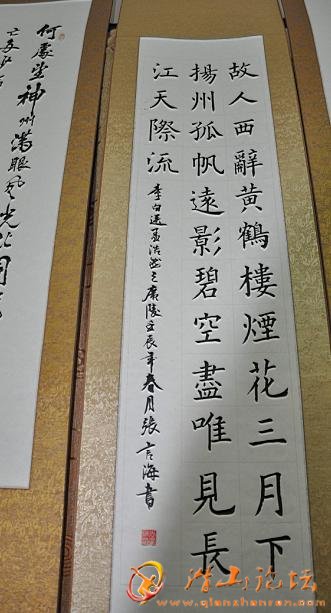 故人西辭黃鶴樓煙花三月下
揚州孤帆遠影碧空盡唯見長
江天際流
李白送孟浩然之廣陵壬辰年春月張言海書
何處望神州滿眼風光北固
亡多少
www.qianshanren.com